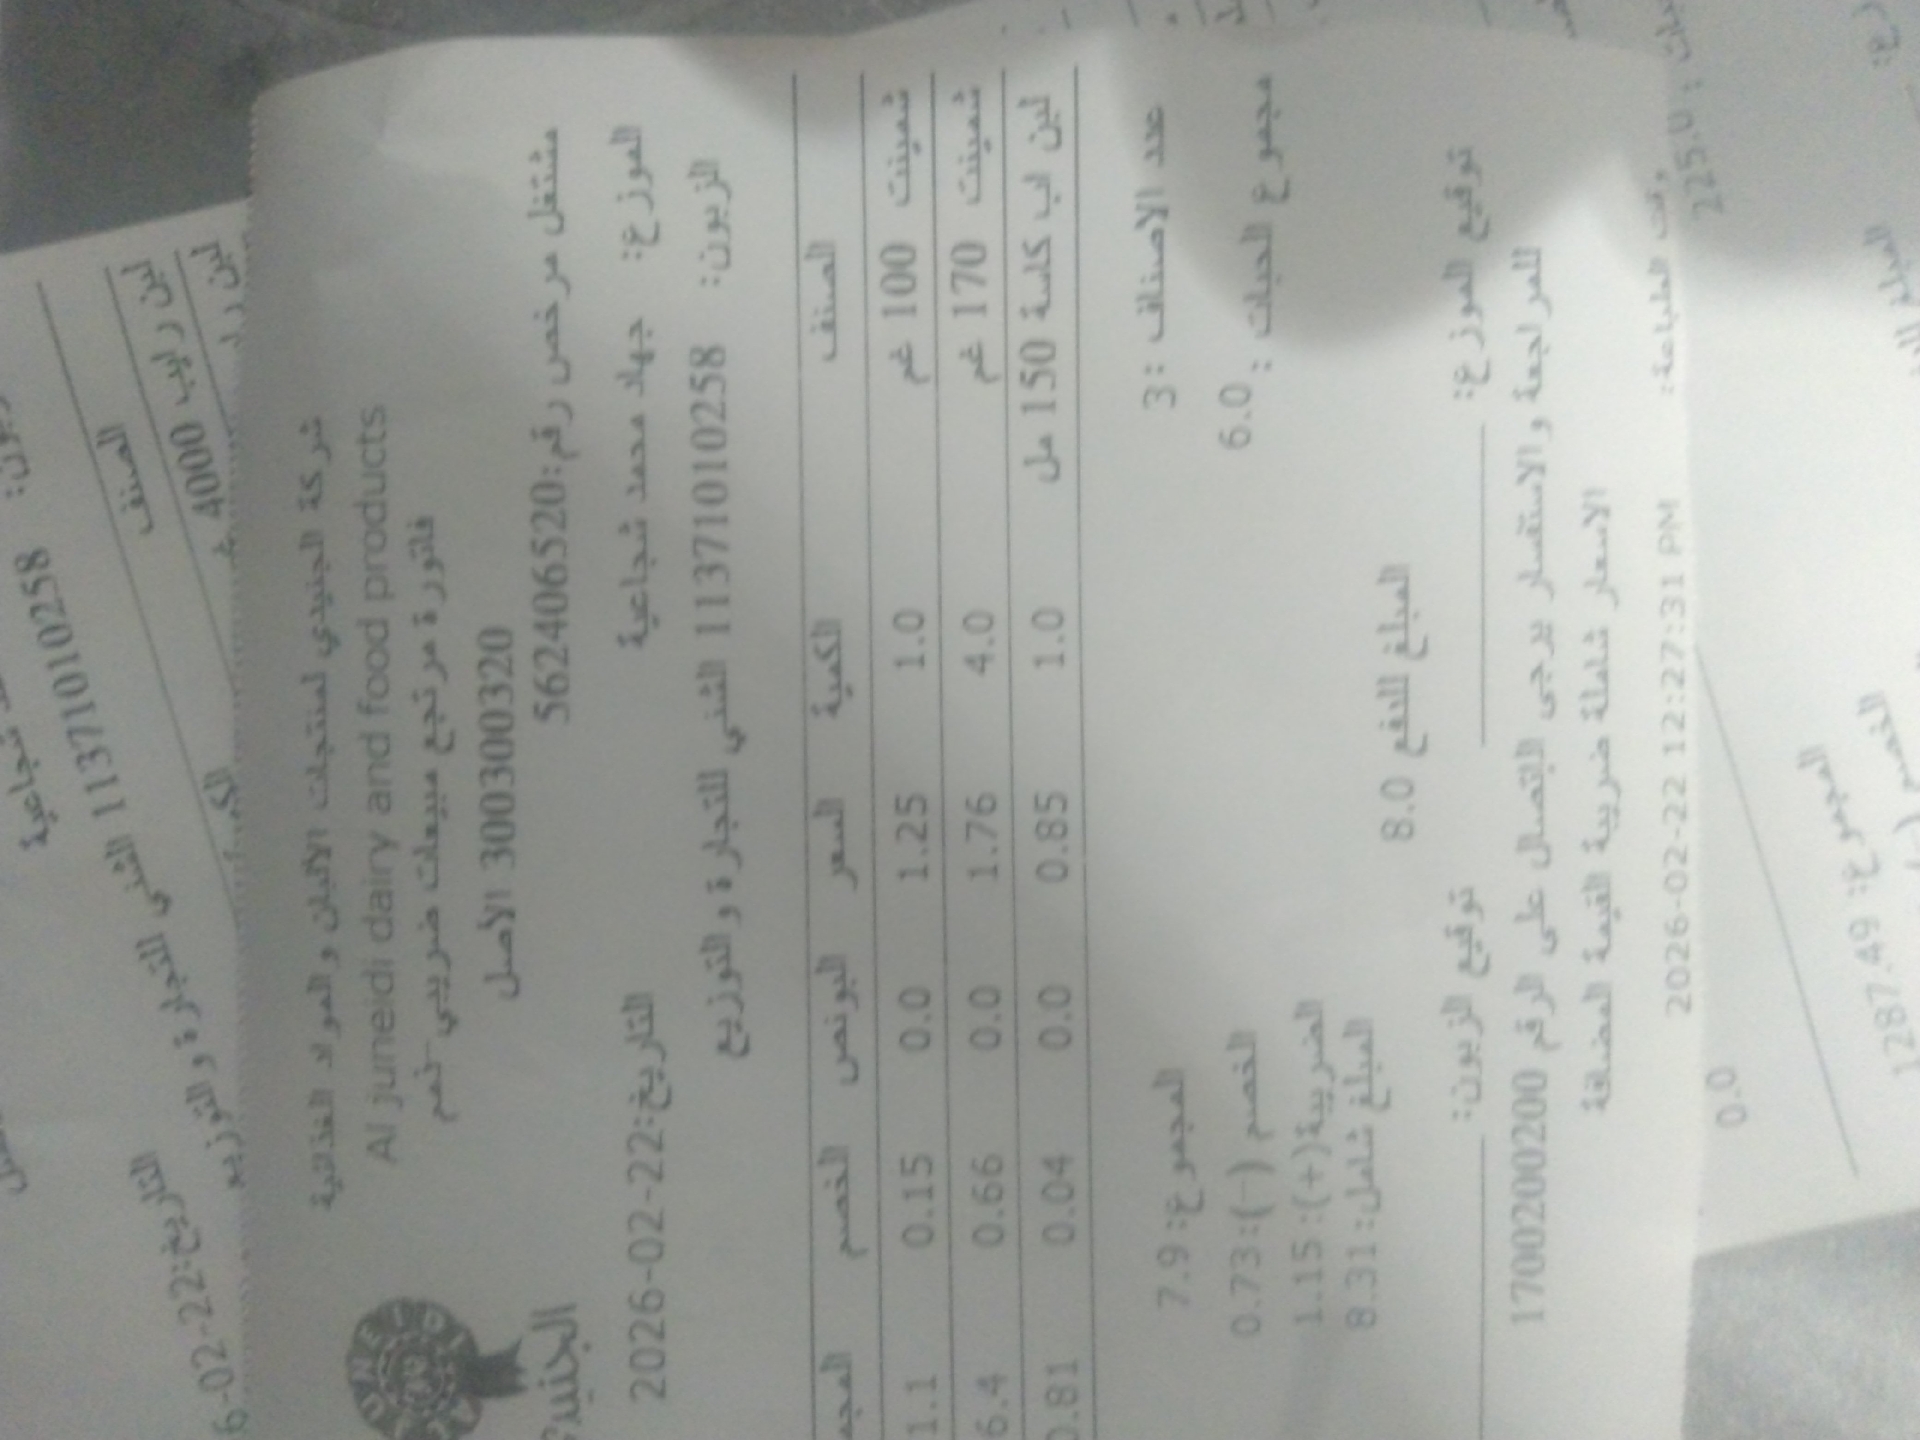 شركة الجنيدي لمنتجات الالبان و المواد الغذائية
Al juneidi dairy and food products
فاتورة مرتجع مبيعات ضريبي-نعم
300300320 الأصل
مشتغل مرخص رقم:562406520
الجنيدي
الموزع: جهاد محمد شجاعية التاريخ:2026-02-22
الزبون: 1137101010258 الثني للتجارة و التوزيع
الصنف الكمية السعر البونص الخصم المجم
شمينت 100 غم 1.0 1.25 0.0 0.15 1.1
شمينت 170 غم 4.0 1.76 0.0 0.66 6.4
لبن اب كاسة 150 مل 1.0 0.85 0.0 0.04 0.81
عدد الاصناف :3 المجموع: 7.9
مجموع الحبات : 6.0 الخصم (-):0.73
الضريبة(+):1.15
المبلغ شامل: 8.31
المبلغ للدفع 8.0
توقيع الموزع: توقيع الزبون:
للمراجعة و الاستفسار يرجى الاتصال على الرقم 1700200200
الاسعار شاملة ضريبة القيمة المضافة
وقت الطباعة: 2026-02-22 12:27:31 PM
شجاعية
زبون: 1137101010258 الثني للتجارة و التوزيع
التاريخ:2026-02-22
الصنف
لبن رايب 4000
لبن
225.0
0.0
المجموع: 1287.49
الخصم (-)